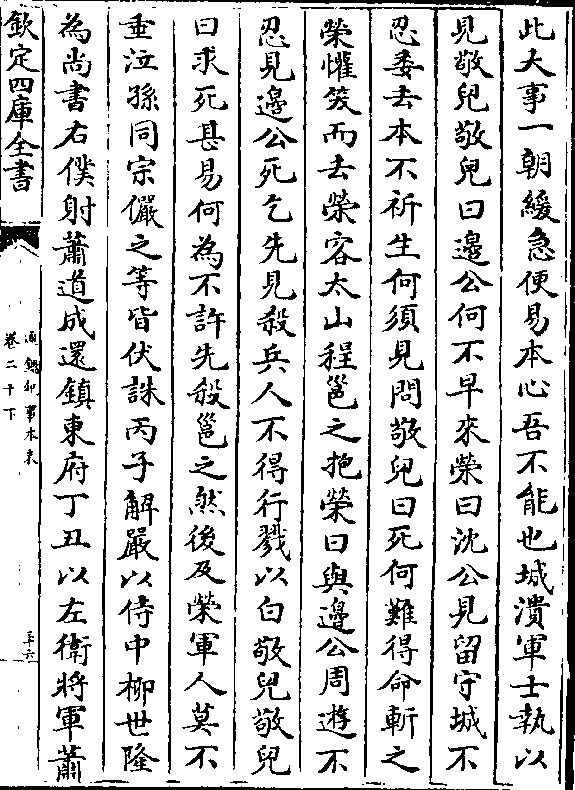 此大事一朝緩急便易本心吾不能也城潰軍士執以
見敬兒敬兒曰邊公何不早來榮曰沈公見留守城不
忍委去本不祈生何須見問敬兒曰死何難得命斬之
榮懽笑而去榮客太山程邕之抱榮曰與邊公周遊不
忍見邊公死乞先見殺兵人不得行戮以白敬兒敬兒
曰求死甚易何為不許先殺邕之然後及榮軍人莫不
垂泣孫同宗儼之等皆伏誅丙子解嚴以侍中柳世隆
為尚書右僕射蕭道成還鎮東府丁丑以左衛將軍蕭
欽定四庫全書
通鑑紀事本末
卷二十下
三六